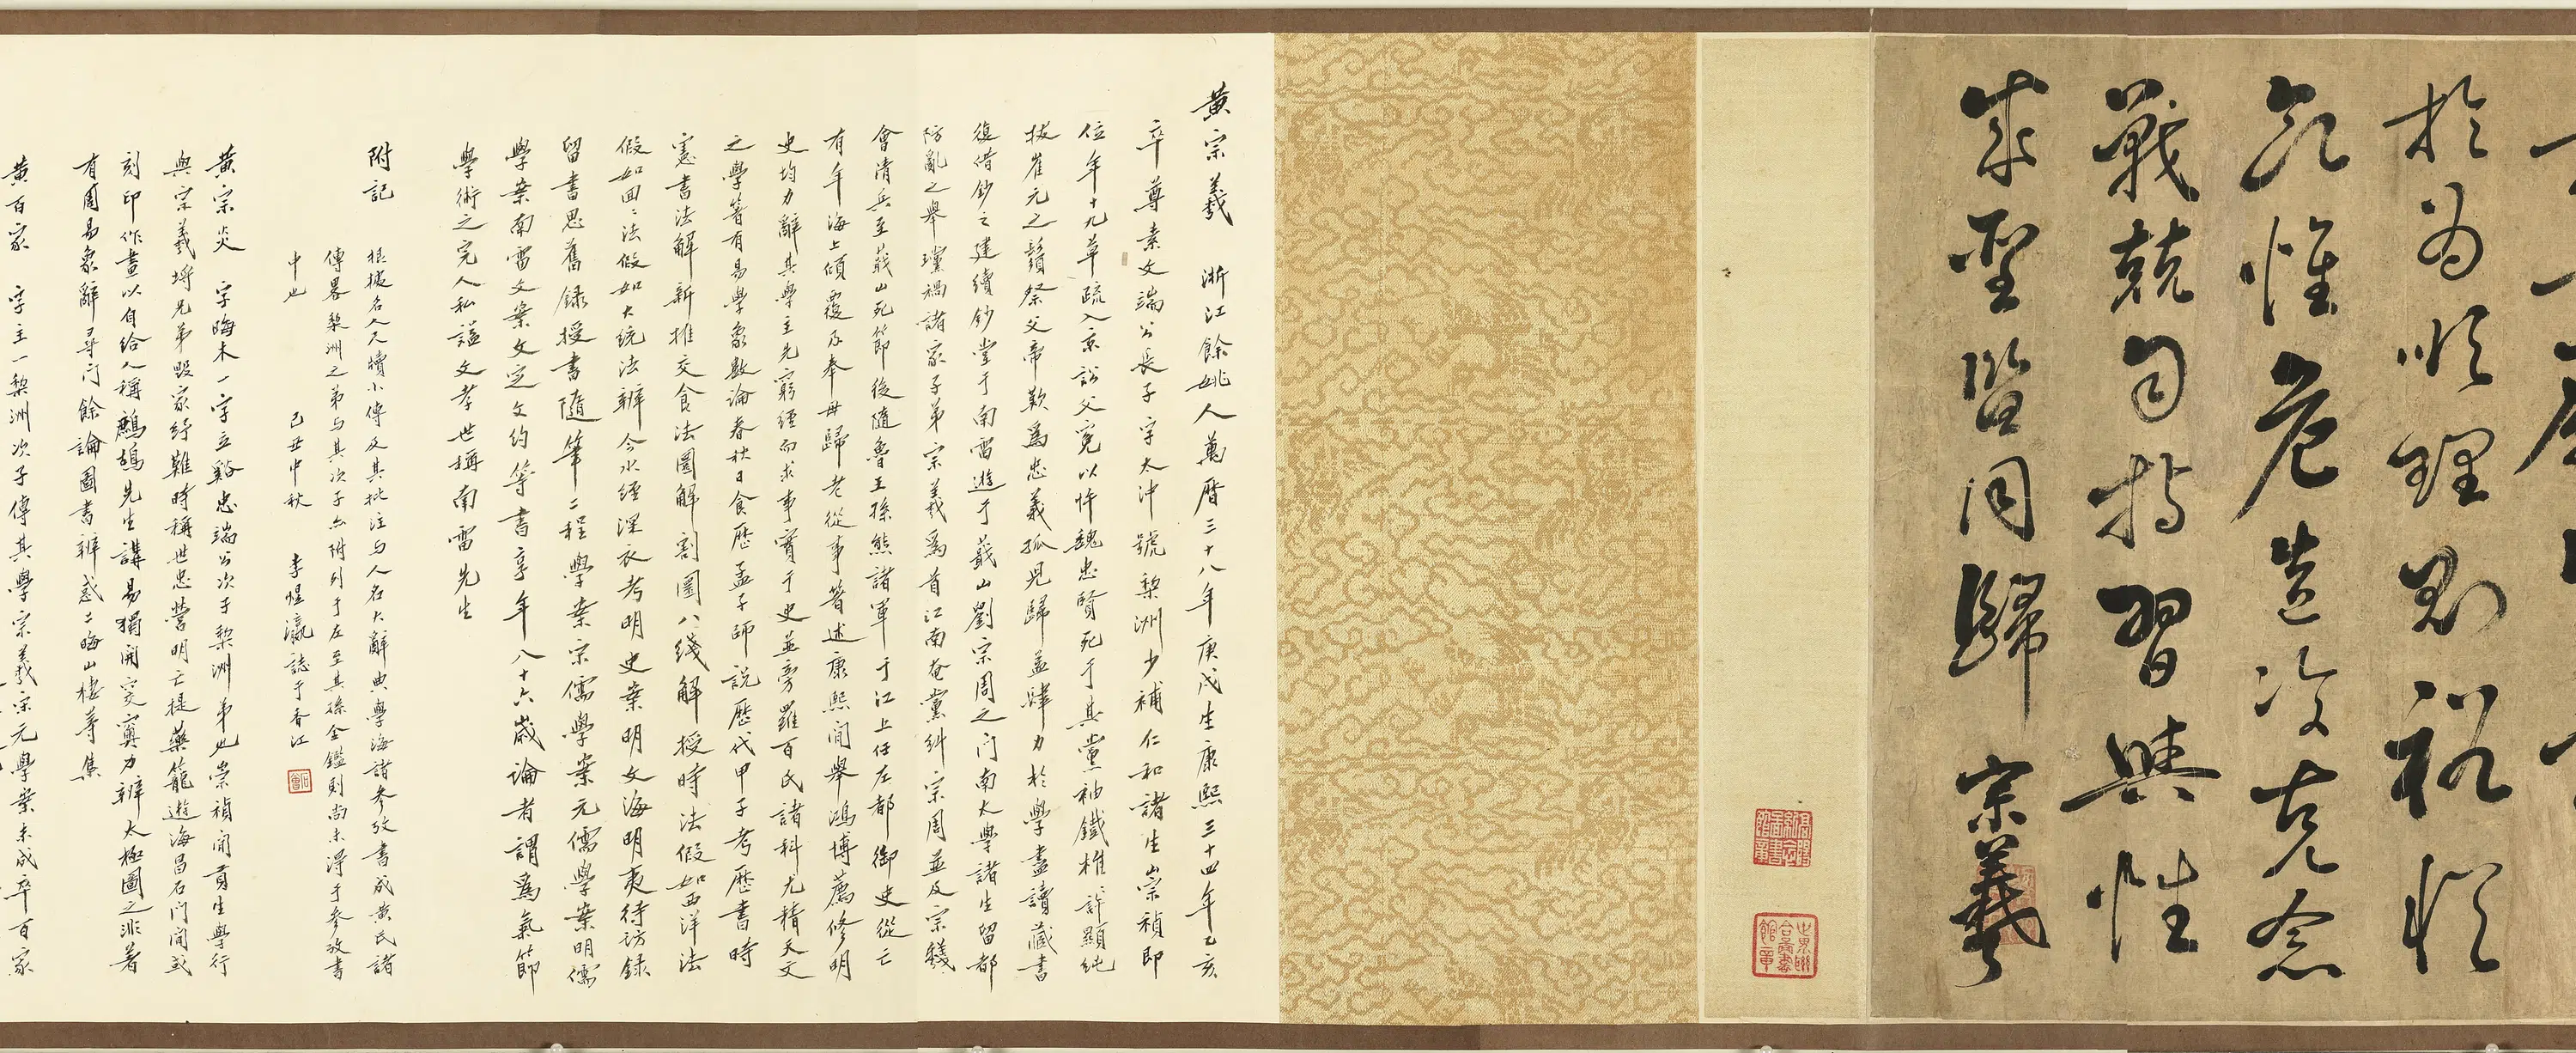 於為順理則裕從
欲惟危造次克念
戰兢自持習與性
成聖賢同歸 宗羲
黃宗羲 浙江餘姚人萬曆三十八年庚戌生康熙三十四年乙亥
卒尊素文端公長子字太沖號梨洲少補仁和諸生崇禎即
位年十九草疏入京訟父冤以忤魏忠賢死于其黨袖鐵椎許顯純
拔崔元之鬚祭父帝歎為忠義孤兒歸益肆力於學盡讀藏書
復借鈔之建續鈔堂于南雷遊于蕺山劉宗周之門南太學諸生留都
防亂之舉璫禍諸家子弟宗羲為首江南奄黨糾宗周並及宗羲
會清兵至蕺山死節後隨魯王孫熊諸軍于江上任左都御史從亡
有年海上傾覆乃奉母歸老從事著述康熙間舉鴻博薦修明
史均力辭其學主先窮經而求事實于史並旁羅百氏諸科尤精天文
之學著有易學象數論春秋日食歷孟子師說歷代甲子考歷書時
憲書法解新推交食法圖解割圜八綫解授時法假如西洋法
假如回ミ法假如大統法辯今水經深衣考明史案明文海明夷待訪錄
留書思舊錄授書隨筆二程學案宋儒學案元儒學案明儒
學案南雷文案文定文約等書享年八十六歲論者謂為氣節
學術之完人私諡文孝世稱南雷先生
附記
根據名人尺牘小傳及其批注与人名大辭典學海諸參攷書成黃氏諸
傳畧梨洲之弟与其次子亦附列于左至其孫全鑑則尚未得于參攷書
中也
己丑中秋 李惺瀛誌于香江
黃宗炎 字晦木一字立谿忠端公次子梨洲弟也崇禎間貢生學行
與宗羲埒兄弟毀家紓難時稱世忠營明亡提藥籠遊海昌石門間或
刻印作畫以自給人稱鷓鴣先生講易獨開突奧力辨太極圖之非著
有周易象辭尋門餘論圖書辨惑二晦山棲等集
黃百家 字主一梨洲次子傳其學宗羲宋元學案未成卒百家